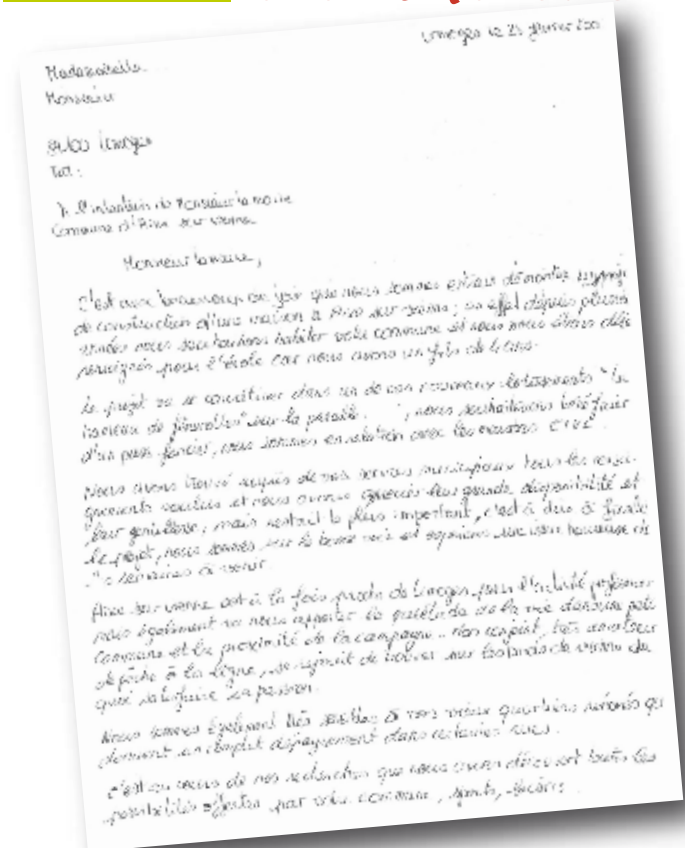 Limoges le 25 janvier
Mademoiselle
Monsieur
Limoges
Tel :
A l'intention de Monsieur le maire
Commune d'Aixe sur Vienne
Monsieur le maire,
C'est avec beaucoup de joie que nous sommes entrain de monter un projet
de construction d'une maison à Aixe sur Vienne ; en effet depuis plusieurs
années nous souhaitons habiter votre commune et nous nous étions déjà
renseignés pour l'école car nous avons un fils de 4 ans.
Le projet va se concrétiser dans un de vos nouveaux lotissements "le
hameau de " sur la parcelle , nous souhaitons bénéficier
d'un pass-foncier, nous sommes en relation avec les maisons
Nous avons trouvé auprès de vos services municipaux tous les rensei-
gnements voulus et nous avons apprécié leur grande disponibilité et
leur gentillesse, mais restait le plus important, c'est à dire à finaliser
le projet, nous sommes sur la bonne voie et espérons une issue heureuse
semaines à venir.
Aixe sur Vienne est à la fois proche de Limoges pour l'activité professionn
mais également va nous apporter la quiétude de la vie dans une petite
commune et la proximité de la campagne. Mon conjoint, très amateur
de pêche à la ligne, se réjouit de trouver sur les bords de Vienne de
quoi satisfaire sa passion.
Nous sommes également très sensibles à vos vieux quartiers rénovés qui
donnent un complet dépaysement dans certaines rues.
C'est au cours de nos recherches que nous avons découvert toutes les
possibilités offertes par votre commune, sports, loisirs